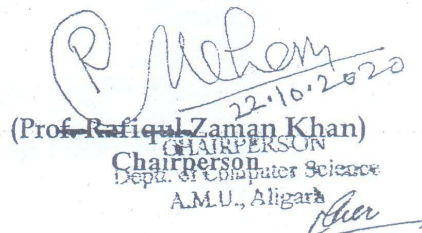 22.10.2020
(Prof. Rafiqul Zaman Khan)
CHAIRPERSON
Chairperson
Deptt. of Computer Science
A.M.U., Aligarh